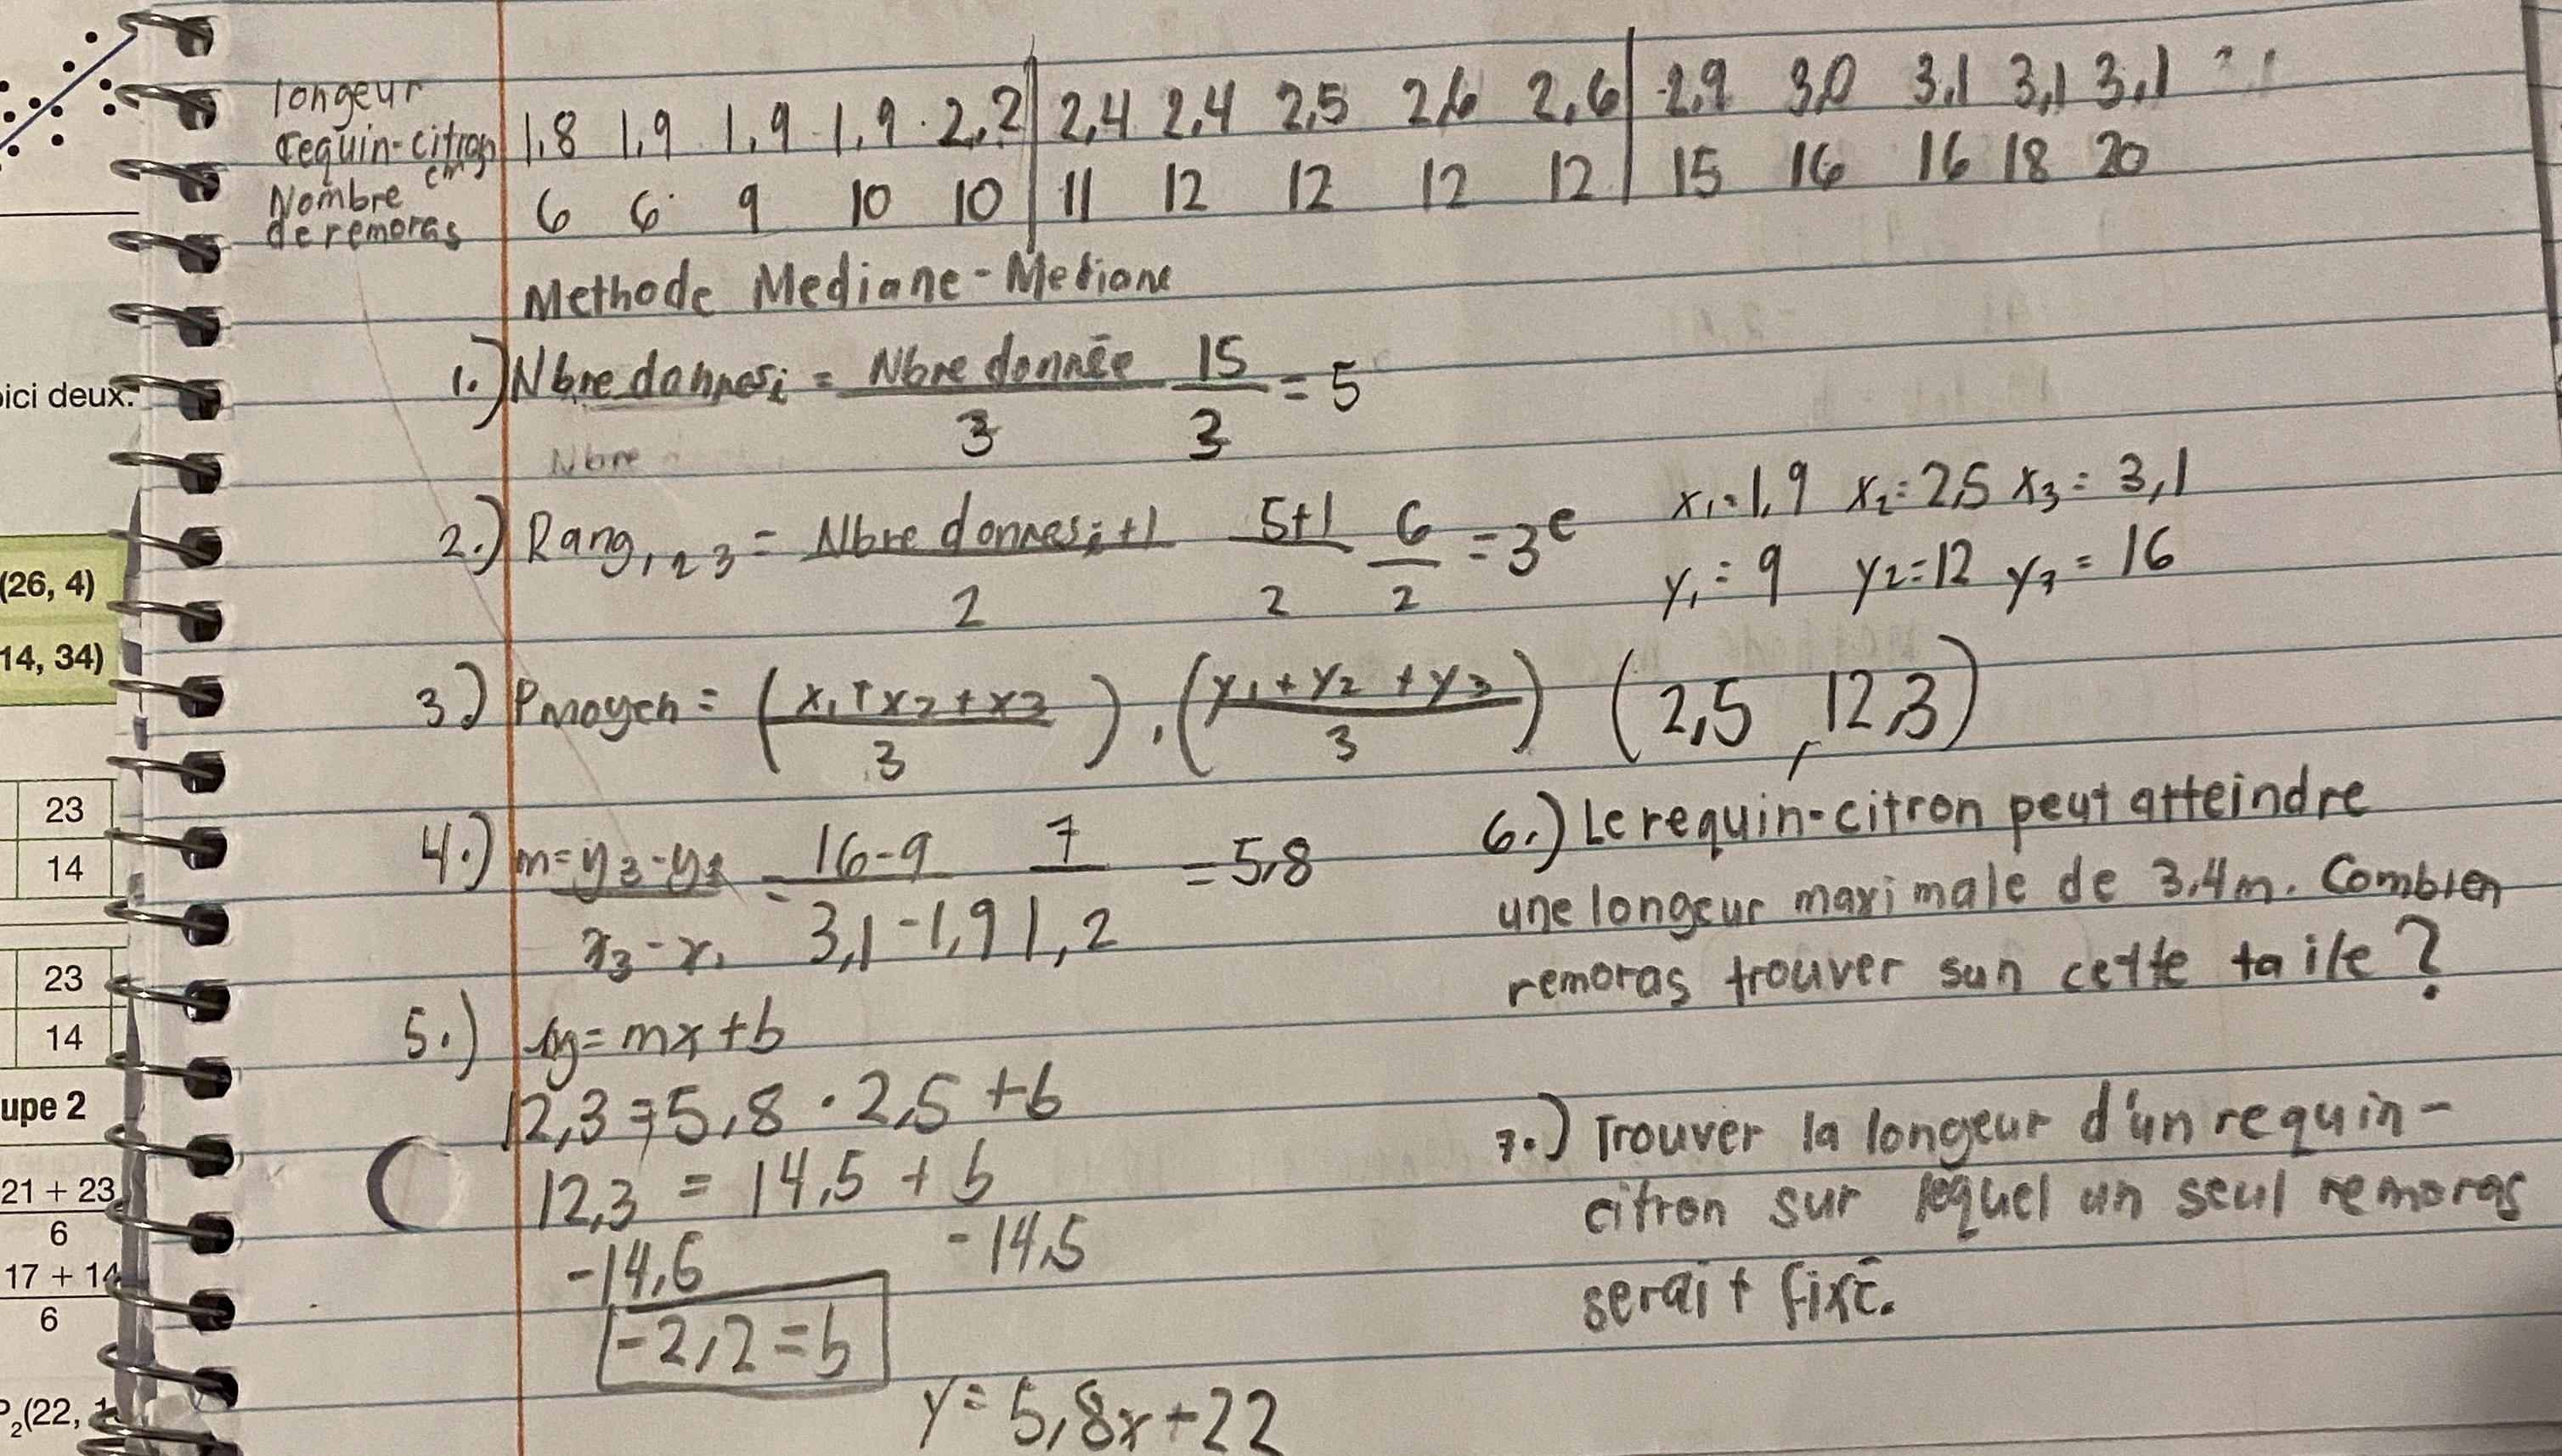 longeur
requin-citron
cm
1,8 1,9 1,9 1,9 2,2 2,4 2,4 2,5 2,6 2,6 2,9 3,0 3,1 3,1 3,1
Nombre
de remoras
6 6 9 10 10 11 12 12 12 12 15 16 16 18 20
Methode Mediane-Mediane
1.) Nbre donnesi = Nbre donnée 15 = 5
3 3
Nbre
2.) Rang,1 2 3 = Nbre donnesi+1 5+1 6 = 3e
2 2 2
x1=1,9 x2=2,5 x3=3,1
y1=9 y2=12 y3=16
3) Pmoyen = (x1+x2+x3) , (y1+y2+y3) (2,5, 12,3)
3 3
4.) m=y3-y1 = 16-9 7 = 5,8
x3-x1 3,1-1,9 1,2
5.) y=mx+b
12,3=5,8·2,5+b
12,3 = 14,5 + b
-14,5 -14,5
-2,2=b
y=5,8x+22
6.) Le requin-citron peut atteindre
une longeur maximale de 3.4m. Combien
remoras trouver sun cette taille?
7.) Trouver la longeur d'un requin-
citron sur lequel un seul remoras
serait fixé.
ici deux.
(26, 4)
14, 34)
23
14
23
14
upe 2
21 + 23
6
17 + 14
6
P2(22, 1